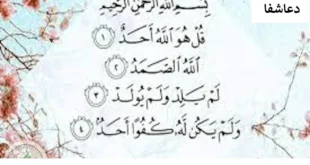 دعاشفا
بِسْمِ اللَّهِ الرَّحْمَٰنِ الرَّحِيمِ
قُلْ هُوَ اللَّهُ أَحَدٌ ۝١
اللَّهُ الصَّمَدُ ۝٢
لَمْ يَلِدْ وَلَمْ يُولَدْ ۝٣
وَلَمْ يَكُن لَّهُۥ كُفُوًا أَحَدٌۢ ۝٤